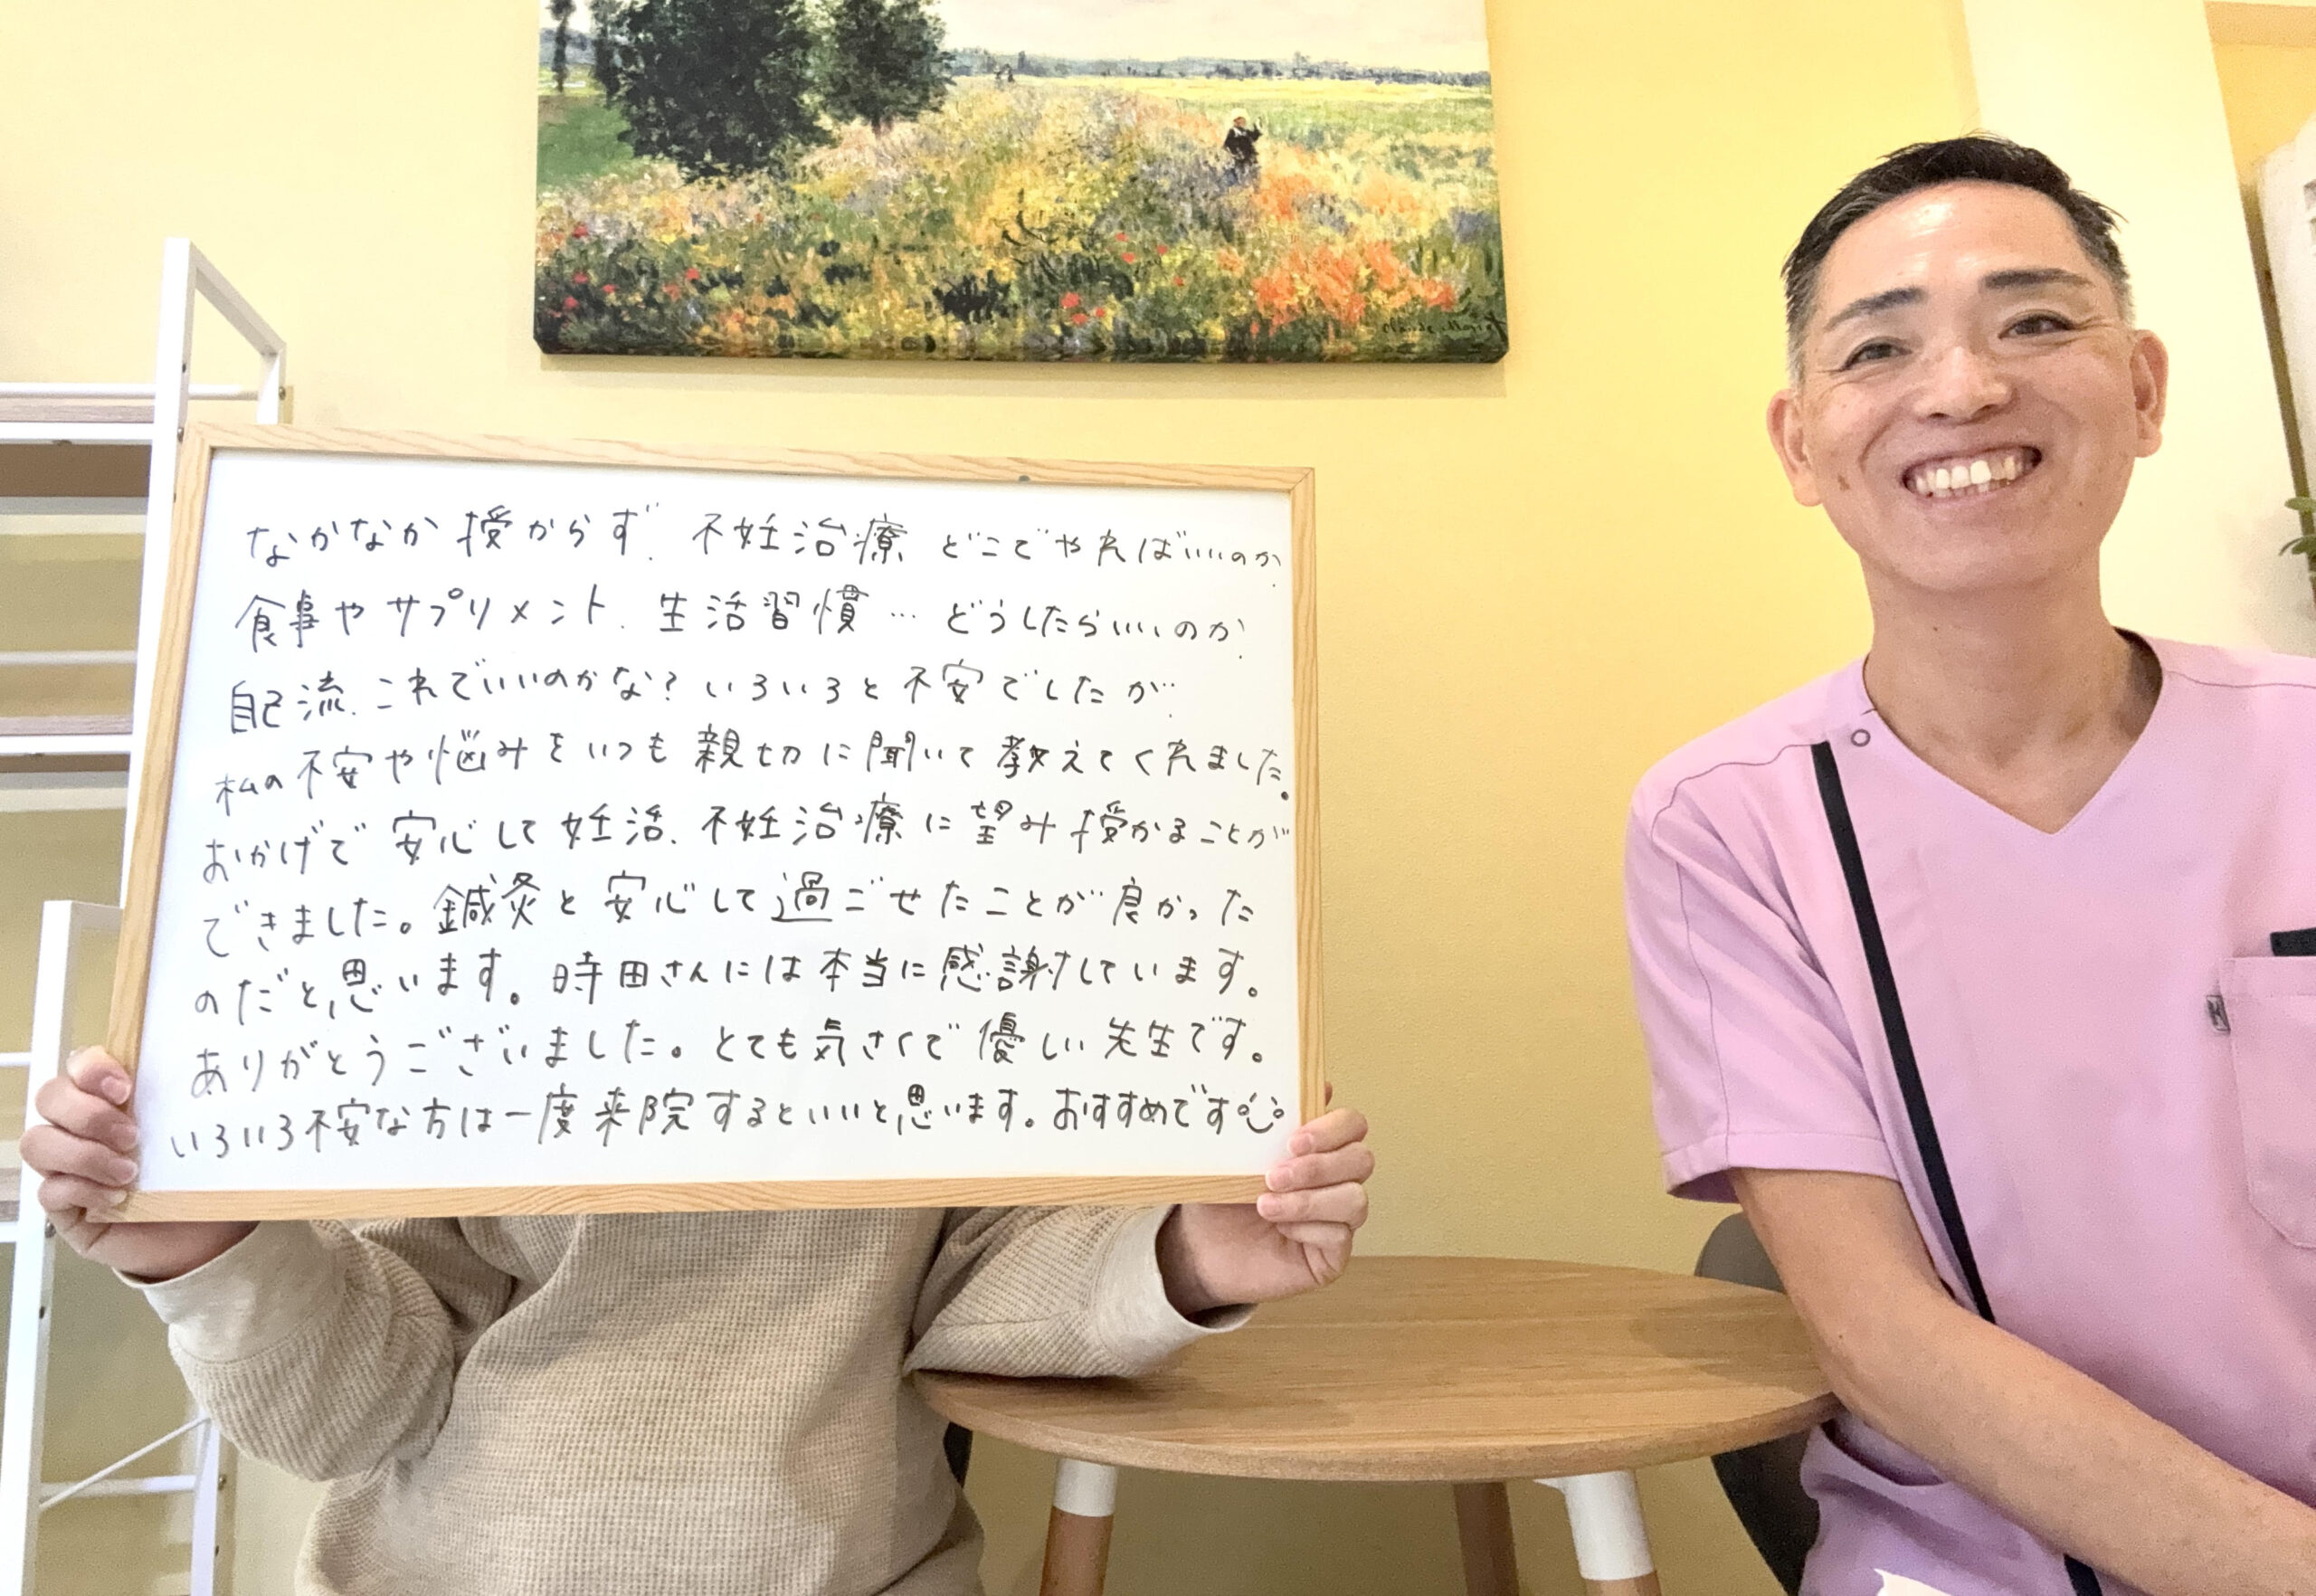 Claude Monet
なかなか授からず、不妊治療どこでやればいいのか、
食事やサプリメント、生活習慣…どうしたらいいのか、
自己流、これでいいのかな？いろいろと不安でしたが、
私の不安や悩みをいつも親切に聞いて教えてくれました。
おかげで安心して妊活、不妊治療に望み授かることが
できました。鍼灸と安心して過ごせたことが良かった
のだと思います。時田さんには本当に感謝しています。
ありがとうございました。とても気さくで優しい先生です。
いろいろ不安な方は一度来院するといいと思います。おすすめです